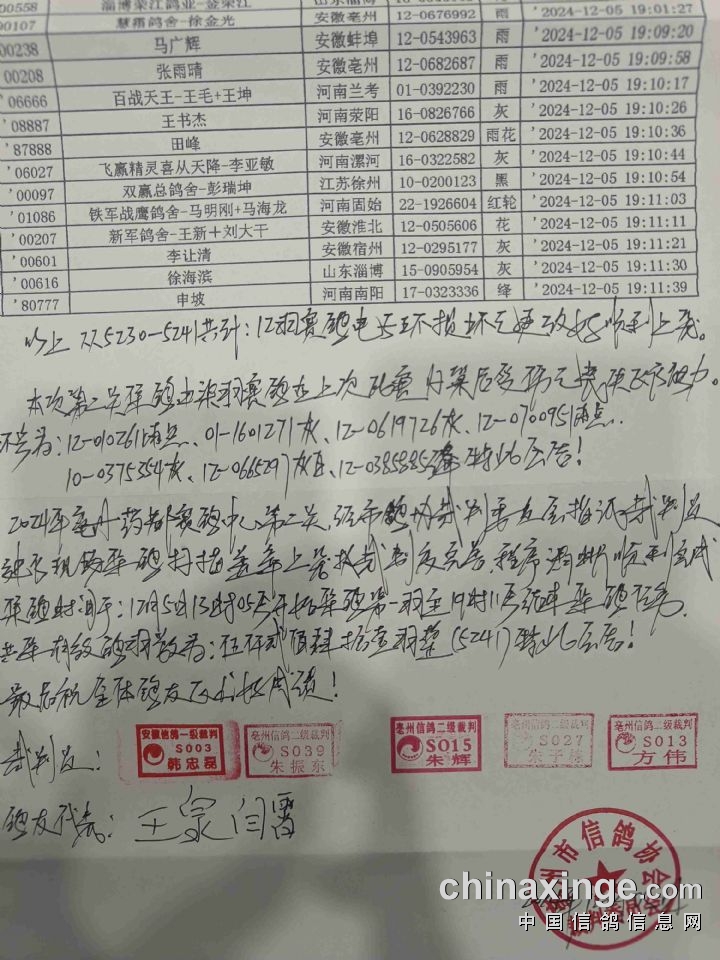 00558 淄博荣江鸽业-金荣江 山东淄博 '2024-12-05 19:01:27
90107 慧翔鸽舍-徐金光 安徽亳州 12-0676992 雨 '2024-12-05 19:09:20
00238 马广辉 安徽蚌埠 12-0543963 雨 '2024-12-05 19:09:58
'00208 张雨晴 安徽亳州 12-0682687 雨 '2024-12-05 19:10:17
'06666 百战天王-王毛+王坤 河南兰考 01-0392230 雨 '2024-12-05 19:10:26
'08887 王书杰 河南荥阳 16-0826766 灰 '2024-12-05 19:10:36
'87888 田峰 安徽亳州 12-0628829 雨花 '2024-12-05 19:10:44
'06027 飞赢精灵喜从天降-李亚敏 河南漯河 16-0322582 灰 '2024-12-05 19:10:54
'00097 双赢总鸽舍-彭瑞坤 江苏徐州 10-0200123 黑 '2024-12-05 19:11:03
'01086 铁军战鹰鸽舍-马明刚+马海龙 河南固始 22-1926604 红轮 '2024-12-05 19:11:11
'00207 新军鸽舍-王新+刘大干 安徽淮北 12-0505606 花 '2024-12-05 19:11:21
'00601 李让清 安徽宿州 12-0295177 灰 '2024-12-05 19:11:30
'00616 徐海滨 山东淄博 15-0905954 灰 '2024-12-05 19:11:39
'80777 申坡 河南南阳 17-0323336 绛
以上 5230-5241共计:12羽赛鸽电子环损坏已更改好顺利上笼。
本次第二关集鸽 赛鸽在上次比赛归巢后受伤
环号为:12-0102611雨点、01-1601271灰、12-0619726灰、12-0700951雨点、
10-0375354灰、12-0665297灰、12-0385885 特此公告!
2024年亳州药都赛鸽中心第二关,经市鸽协裁判
集鸽扫描盖章上笼 裁判 程序 顺利完成
集鸽时间于:12月5日13时05分开始集鸽第一羽至19时11分结束集鸽任务,
共集有效鸽羽数为:伍仟贰佰肆拾壹羽整(5241)特此公告!
最后祝全体鸽友取得好成绩!
裁判员:
安徽信鸽一级裁判 S003 韩忠磊
亳州信鸽二级裁判 S039 朱振东
亳州信鸽二级裁判 S015 朱辉
亳州信鸽二级裁判 S027
亳州信鸽二级裁判 S013 方伟
鸽友代表: 王泉 闫雷
州市信鸽协会
chinaxinge.com
中国信鸽信息网